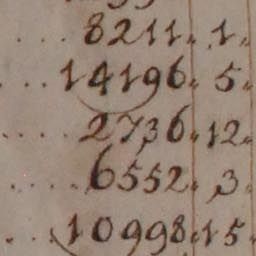 .... 8211. 1.
... 14196. 5.
.... 2736. 12.
.... 6552. 3.
... 10998. 15.